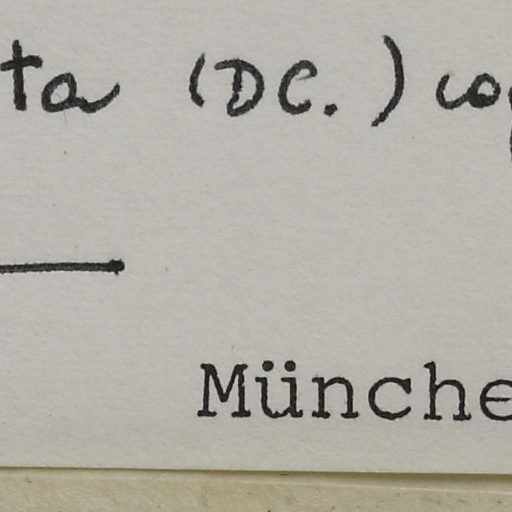 ta (DC.) cog
Münche